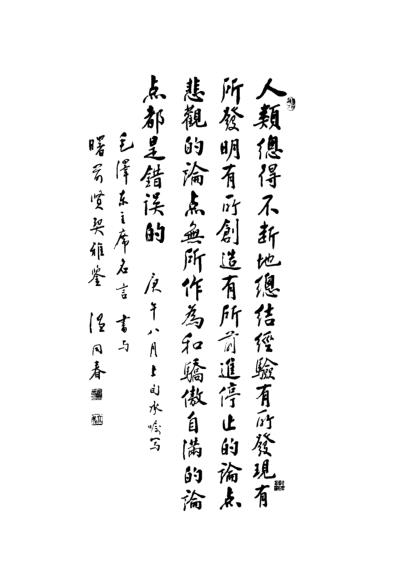 人類總得不斷地總結經驗有所發現有
所發明有所創造有所前進停止的論点
悲觀的論点無所作為和驕傲自滿的論
点都是錯误的
庚午八月上旬水
毛澤东主席名言 書与
曙 贤契雅鉴 温同春